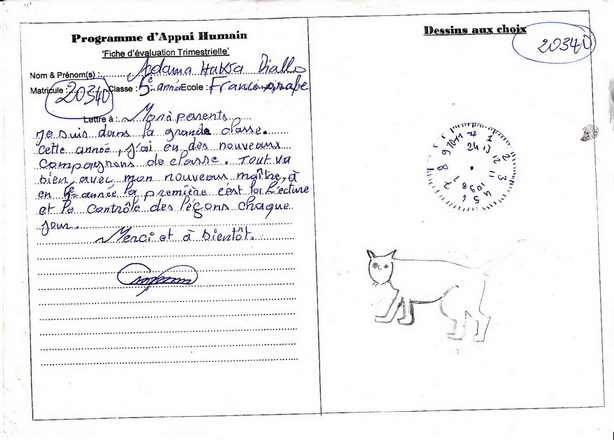 Programme d'Appui Humain
'Fiche d'évaluation Trimestrielle'
Nom & Prénom(s) : Adama Hawa Diallo
Matricule : 20340 Classe : 5e année Ecole : Franco-arabe
Lettre à : Mon parents
Je suis dans la grande classe.
cette année, j'ai eu des nouveaux
compagnons de classe. Tout va
bien avec mon nouveaux maître, à
en 5e année la première c'est la lecture
et le contrôle des léçons chaque
jour.
Merci et à bientôt.
Dessins aux choix
20340